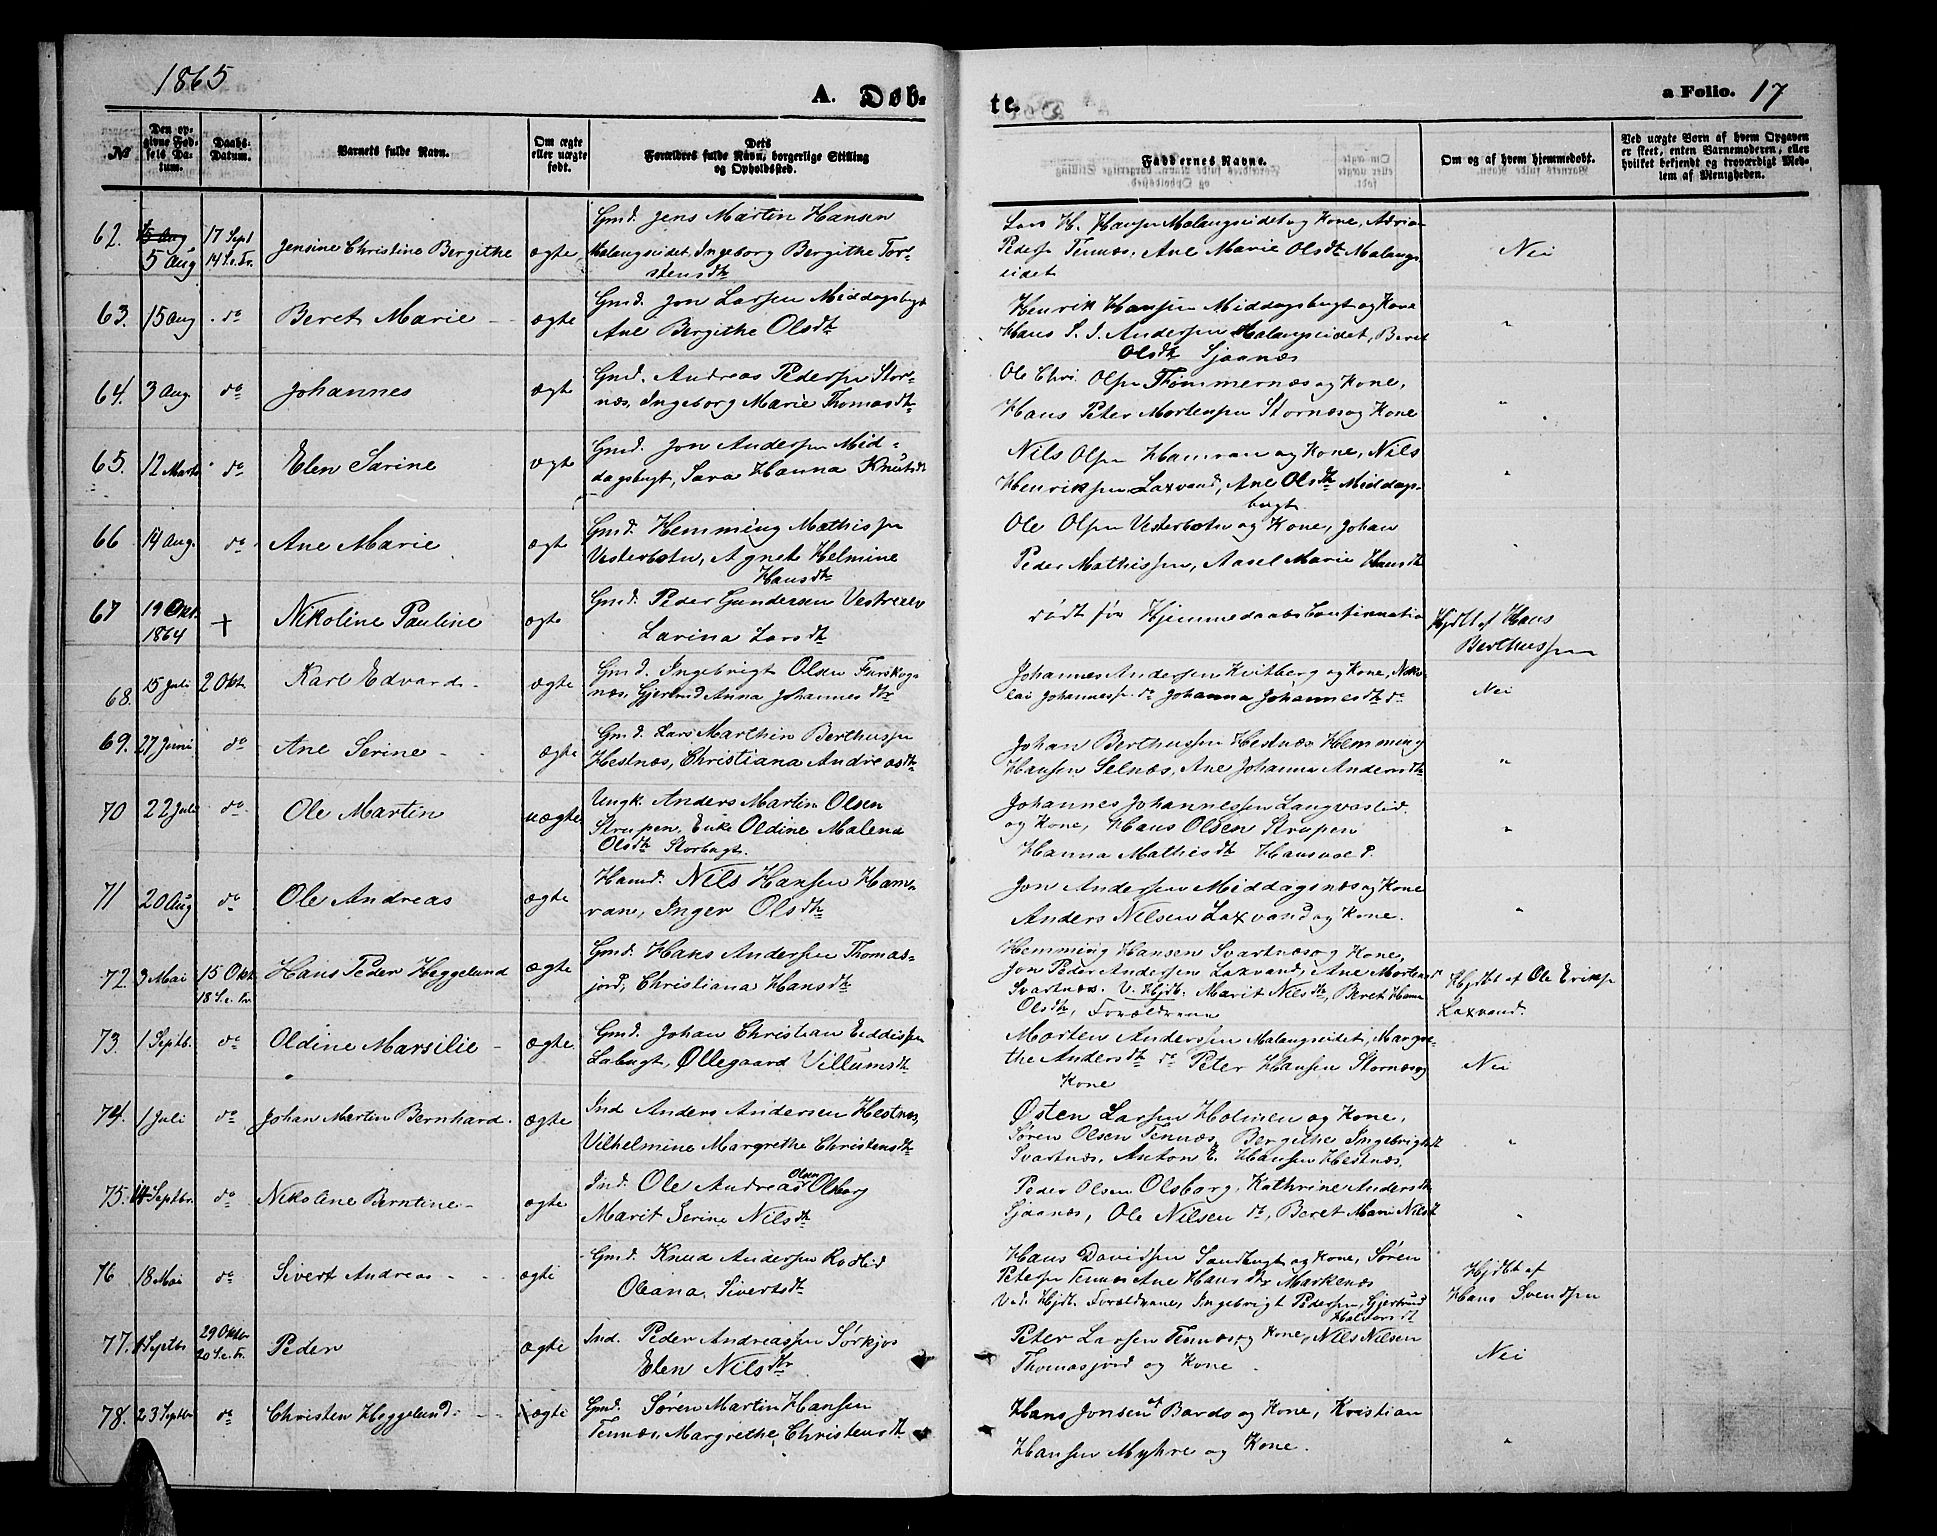 1865
A. Døb-
te.
a Folio. 17
№
Den op-
givne Fød-
sels Da-
tum.
Daabs-
Datum.
Barnets fulde Navn.
Om ægte
eller uægte
født.
Dets
Forældres fulde Navn, borgerlige Stilling
og Opholdssted.
Faddernes Navne.
Om og af hvem hjemmedøbt.
Ved uægte Børn af hvem Opgaven
er skeet, enten Barnemoderen, eller
hvilket bekjendt og troværdigt Med-
lem af Menigheden.
62. 5 Aug 17 Sept Jensine Christine Bergithe ægte Gmd. Jens Martin Hansen
14 S.e.Tr. Malangseidet, Ingeborg Bergithe Tor-
stensdtr
Lars H. Hansen Malangseidet og Kone, Adrian
Peders. Tennæs, Ane Marie Olsdtr Malangs-
eidet
Nei
63. 15 Aug do Beret Marie ægte Gmd. Jon Larsen Middagsbugt
Ane Bergithe Olsdtr
Henrik Hansen Middagsbugt og Kone
Hans S. J. Andersen Malangseidet, Beret
Olsdtr Sjaanæs
"
64. 3 Aug. do Johannes ægte Gmd. Andreas Pedersen Stor-
næs, Ingeborg Marie Thomasdtr
Ole Chri. Olsen Tømmernæs og Kone,
Hans Peter Mortensen Stornæs og Kone
"
65. 12 Marts do Elen Sarine ægte Gmd. Jon Andersen Mid-
dagsbugt, Sara Hanna Knutsdtr
Nils Olsen Hamran og Kone, Nils
Henriksen Laxvand, Ane Olsdtr Middags-
bugt.
"
66 14 Aug. do Ane Marie ægte Gmd. Hemming Mathissen
Vesterbotn, Agnete Helmine
Hansdtr
Ole Olsen Vesterbotn og Kone, Johan
Peder Mathissen, Aasel Marie Hansdtr
"
67 19 Okt. 1864 + Nikoline Pauline ægte Gmd. Peder Gundersen Vestreelv
Larina Larsdtr
dødt før Hjemmedaabs Confirmation
Hjdbt af Hans
Berthussen
68. 15 Juli 2 Okt. Karl Edvard ægte Gmd. Ingebrigt Olsen
næs, Gjertrud Anna Johannesdtr
Johannes Andersen Kvitberg og Kone, Niko-
lai Johanness. do Johanna Johannesdtr do
Nei
69. 27 Juni do Ane Serine ægte Gmd. Lars Marthin Berthussen
Hestnæs, Christiana Andreasdtr
Johan Berthussen Hestnæs Hemming
Hansen Selnæs, Ane Johanna Andersdtr
"
70 22 Juli do Ole Martin uægte Ungk. Anders Martin Olsen
Strupen, Enke Oldine Malena
Olsdtr Storbugt.
Johannes Johannessen Langvaslid
og Kone, Hans Olsen Strupen
Hanna Mathisdtr
"
71 20 Aug do Ole Andreas ægte Hamd. Nils Hansen Ham-
ran, Inger Olsdtr
Jon Andersen Middagsnæs og Kone
Anders Nilsen Laxvand og Kone.
"
72. 3 Mai 15 Okt. Hans Peder Heggelund ægte Gmd. Hans Andersen Thomas-
18 S.e.Tr. jord, Christiana Hansdtr
Hemming Hansen Svartnæs og Kone,
Jon Peder Andersen Laxvand, Ane Mortensdtr
Svartnæs. V. Hjdb. Marit Nilsdtr, Beret Hanna
Olsdtr, Forældrene
Hjdbt af Ole Eriksen
Laxvand.
73. 1 Septb. do Oldine Marsilie ægte Gmd. Johan Christian Eidissen
Labugt, Øllegaard Villumsdtr
Morten Andersen Malangseidet, Margre-
the Andersdtr do Peter Hansen Stornæs og
Kone
Nei
74. 1 Juli do Johan Martin Bernhard ægte Ind Anders Andersen Hestnæs,
Vilhelmine Margrethe Christensdtr
Østen Larsen Holmen og Kone,
Søren Olsen Tennæs, Bergithe Ingebrigtsdtr
Svartnæs, Anton E. Hansen Hestnæs.
"
75. 14 Septbr. do Nikoline Berntine ægte Ind. Ole Andreas Olsen Olsborg
Marit Serine Nilsdtr
Peder Olsen Olsborg, Kathrine Andersdtr
Sjaanæs, Ole Nilsen do, Beret Mari Nilsdtr
"
76 18 Mai do Sivert Andreas ægte Gmd. Knud Andersen Rødlid
Oleana Sivertsdtr
Hans Davidsen Sandbugt og Kone, Søren
Petersen Tennæs Ane Hansdtr Markenæs
Ved. Hjdb. Forældrene, Ingebrigt Pedersen, Gjertrud
Halvorsdtr
Hjdbt af
Hans Svendsen
77. Septbr 29 Oktbr Peder ægte Ind. Peder Andreassen Sørkjos
20 S.e.Tr. Elen Nilsdtr
Peter Larsen Tennæs og Kone, Nils Nilsen
Thomasjord og Kone
Nei
78. 23 Septbr do Christen Heggelund ægte Gmd. Søren Martin Hansen
Tennæs, Margrethe Christensdtr
Hans Jonsen af Bards og Kone, Kristian
Hansen Myhre og Kone.
"